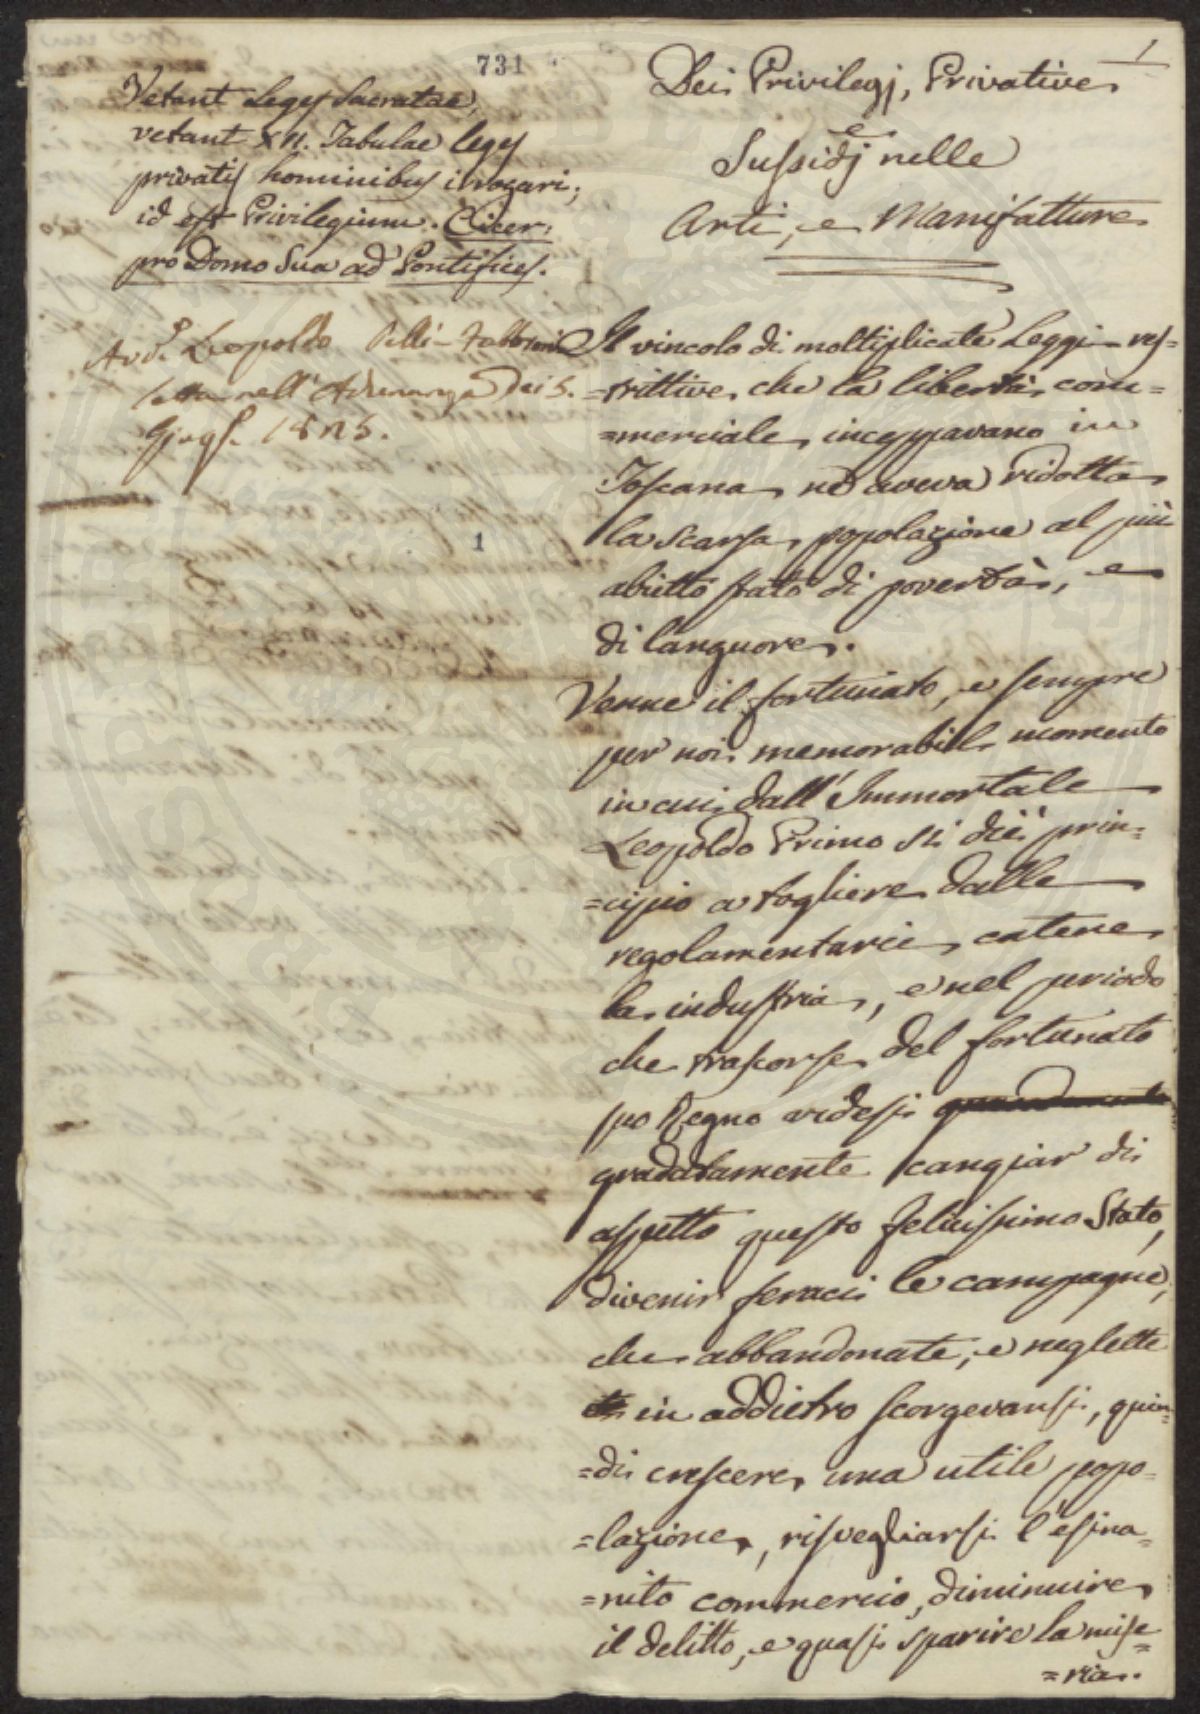 731
1
Vetant Leges Sacratae,
vetant XII. Tabulae leges
privatis hominibus irrogari;
id est Privilegium. Cicer.
pro Domo Sua ad Pontifices.
Leopoldo Pelli-Fabbroni
letta nell'Adunanza dei 5.
1825.
1
Dei Privilegj, Privative
e
Sussidj nelle
Arti, e Manifatture
Il vincolo di moltiplicate Leggi res-
=trittive, che la libertà com=
=merciale inceppavano in
Toscana ne aveva ridotta
la scarsa popolazione al più
abietto stato di povertà, e
di languore.
Venne il fortunato, e sempre
per noi memorabile momento
in cui dall'Immortale
Leopoldo Primo si diè prin=
=cipio a togliere dalle
regolamentarie catene
la industria, e nel periodo
che trascorse del fortunato
suo Regno videsi
gradatamente cangiar di
aspetto questo felicissimo Stato,
divenir feraci le campagne,
che abbandonate, e neglette
in addietro scorgevansi, quin=
=di crescere una utile popo=
=lazione, risvegliarsi l'esina=
=nito commercio, diminuire
il delitto, e quasi sparire la mise=
=ria.